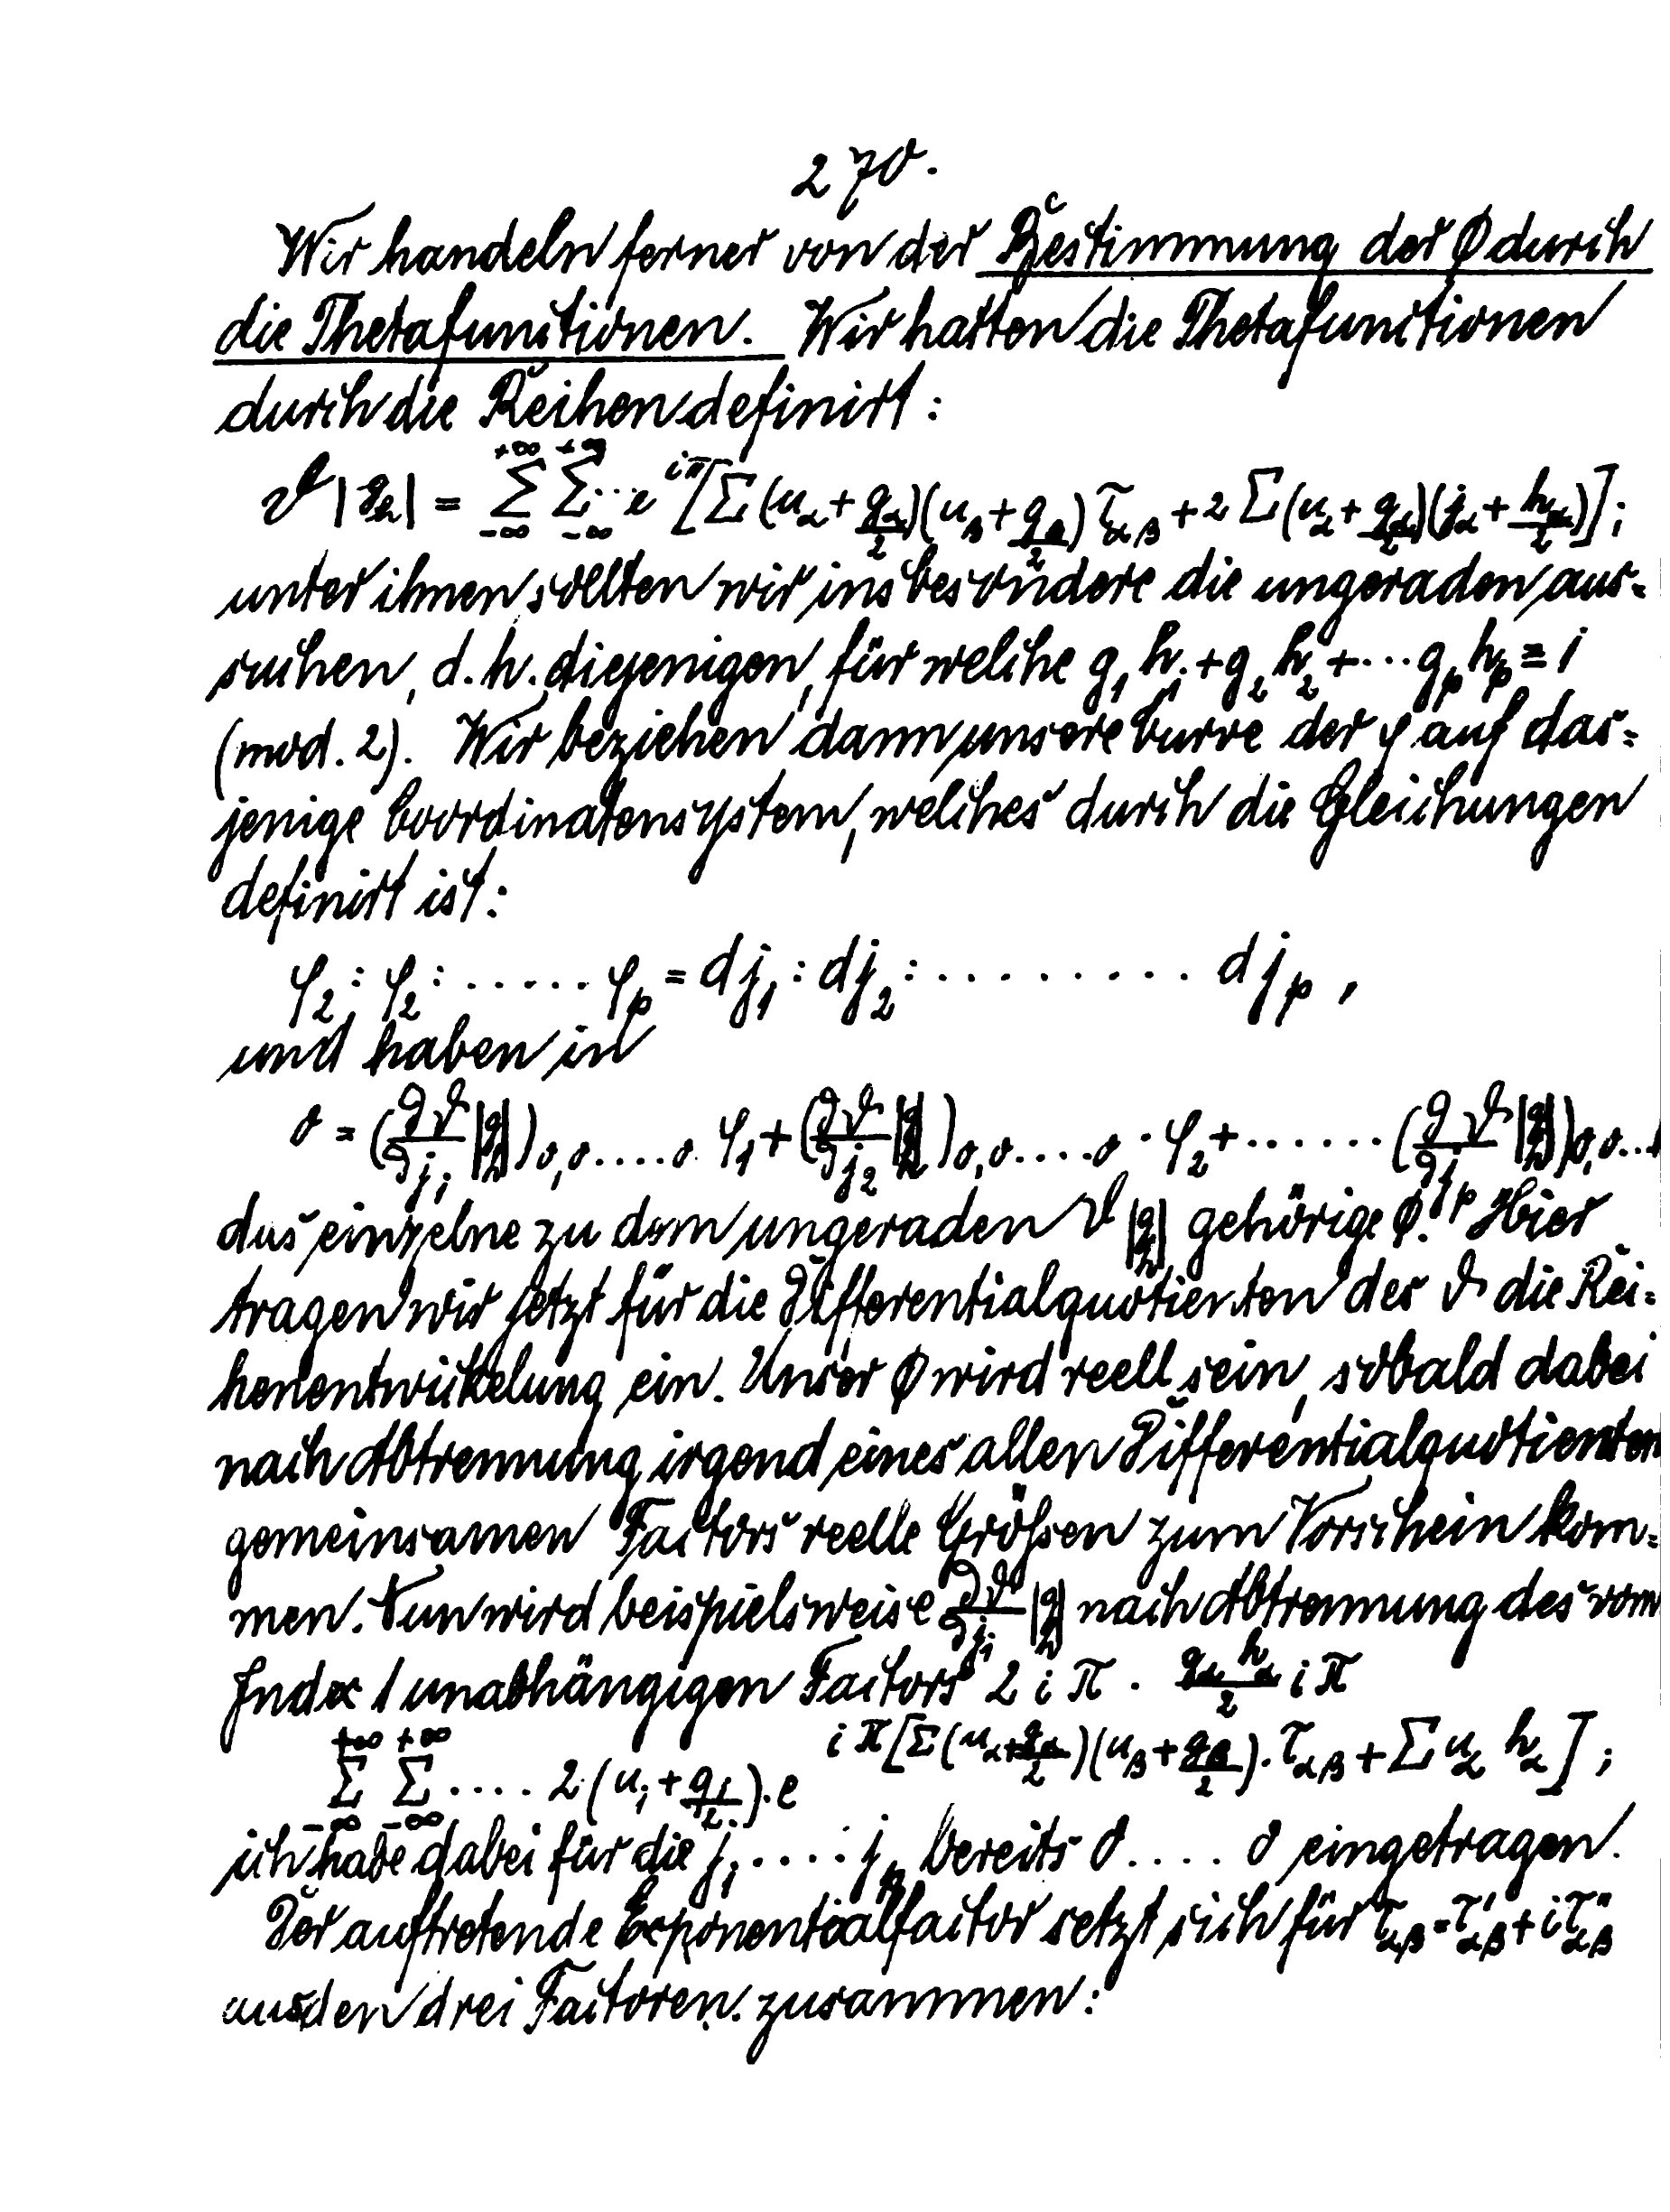 270.
Wir handeln ferner von der Bestimmung der Φ durch
die Thetafunctionen. Wir hatten die Thetafunctionen
durch die Reihen definirt:
ϑ|g h| = +∞ Σ -∞ +∞ Σ -∞ ... e iπ[Σ(n_α + g_α/2)(n_β + g_β/2) τ_αβ + 2 Σ(n_α + g_α/2)(j_α + h_α/2)];
unter ihnen sollten wir insbesondere die ungeraden aus-
suchen, d. h. diejenigen, für welche g₁h₁+g₂h₂+...g_p h_p ≡ 1
(mod. 2). Wir beziehen dann unsere Curve der φ auf das-
jenige Coordinatensystem, welches durch die Gleichungen
definirt ist:
φ₂ : φ₂ : ...... φ_p = dj₁ : dj₂ : ......... dj_p,
und haben in
0 = (∂ϑ/∂j₁ |g h|)₀,₀.....₀ φ₁ + (∂ϑ/∂j₂ |g h|)₀,₀....₀ · φ₂ + ...... (∂ϑ/∂j_p |g h|)₀,₀..
das einzelne zu dem ungeraden ϑ|g h| gehörige Φ. Hier
tragen wir jetzt für die Differentialquotienten der ϑ die Rei-
henentwickelung ein. Unser Φ wird reell sein, sobald dabei
nach Abtrennung irgend eines allen Differentialquotienten
gemeinsamen Factors reelle Größen zum Vorschein kom-
men. Nun wird beispielsweise ∂ϑ/∂j₁ |g h| nach Abtrennung des vom
Index 1 unabhängigen Factors 2iπ · g_α h_α/2 iπ
+∞ Σ -∞ +∞ Σ -∞ .... 2·(n₁ + g₁/2)·e iπ[Σ(n_α + g_α/2)(n_β + g_β/2)·τ_αβ + Σ n_α h_α];
ich habe dabei für die j₁.....j_p bereits 0.... 0 eingetragen.
Der auftretende Exponentialfactor setzt sich für τ_αβ = τ'_αβ + iτ''_αβ
aus den drei Factoren zusammen: